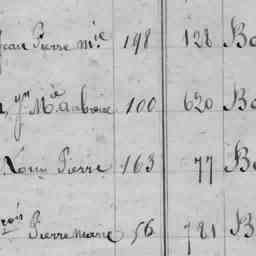 Jean Pierre m.ie 148 128 Bo
yn M.e ambroise 100 620 Bo
Louis Pierre 163 77 Bo
çois Pierre marie 56 721 B